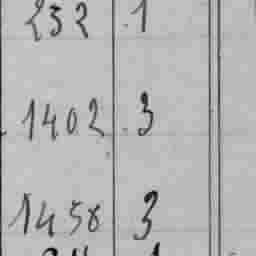 232 .1
1402 .3
1458 3